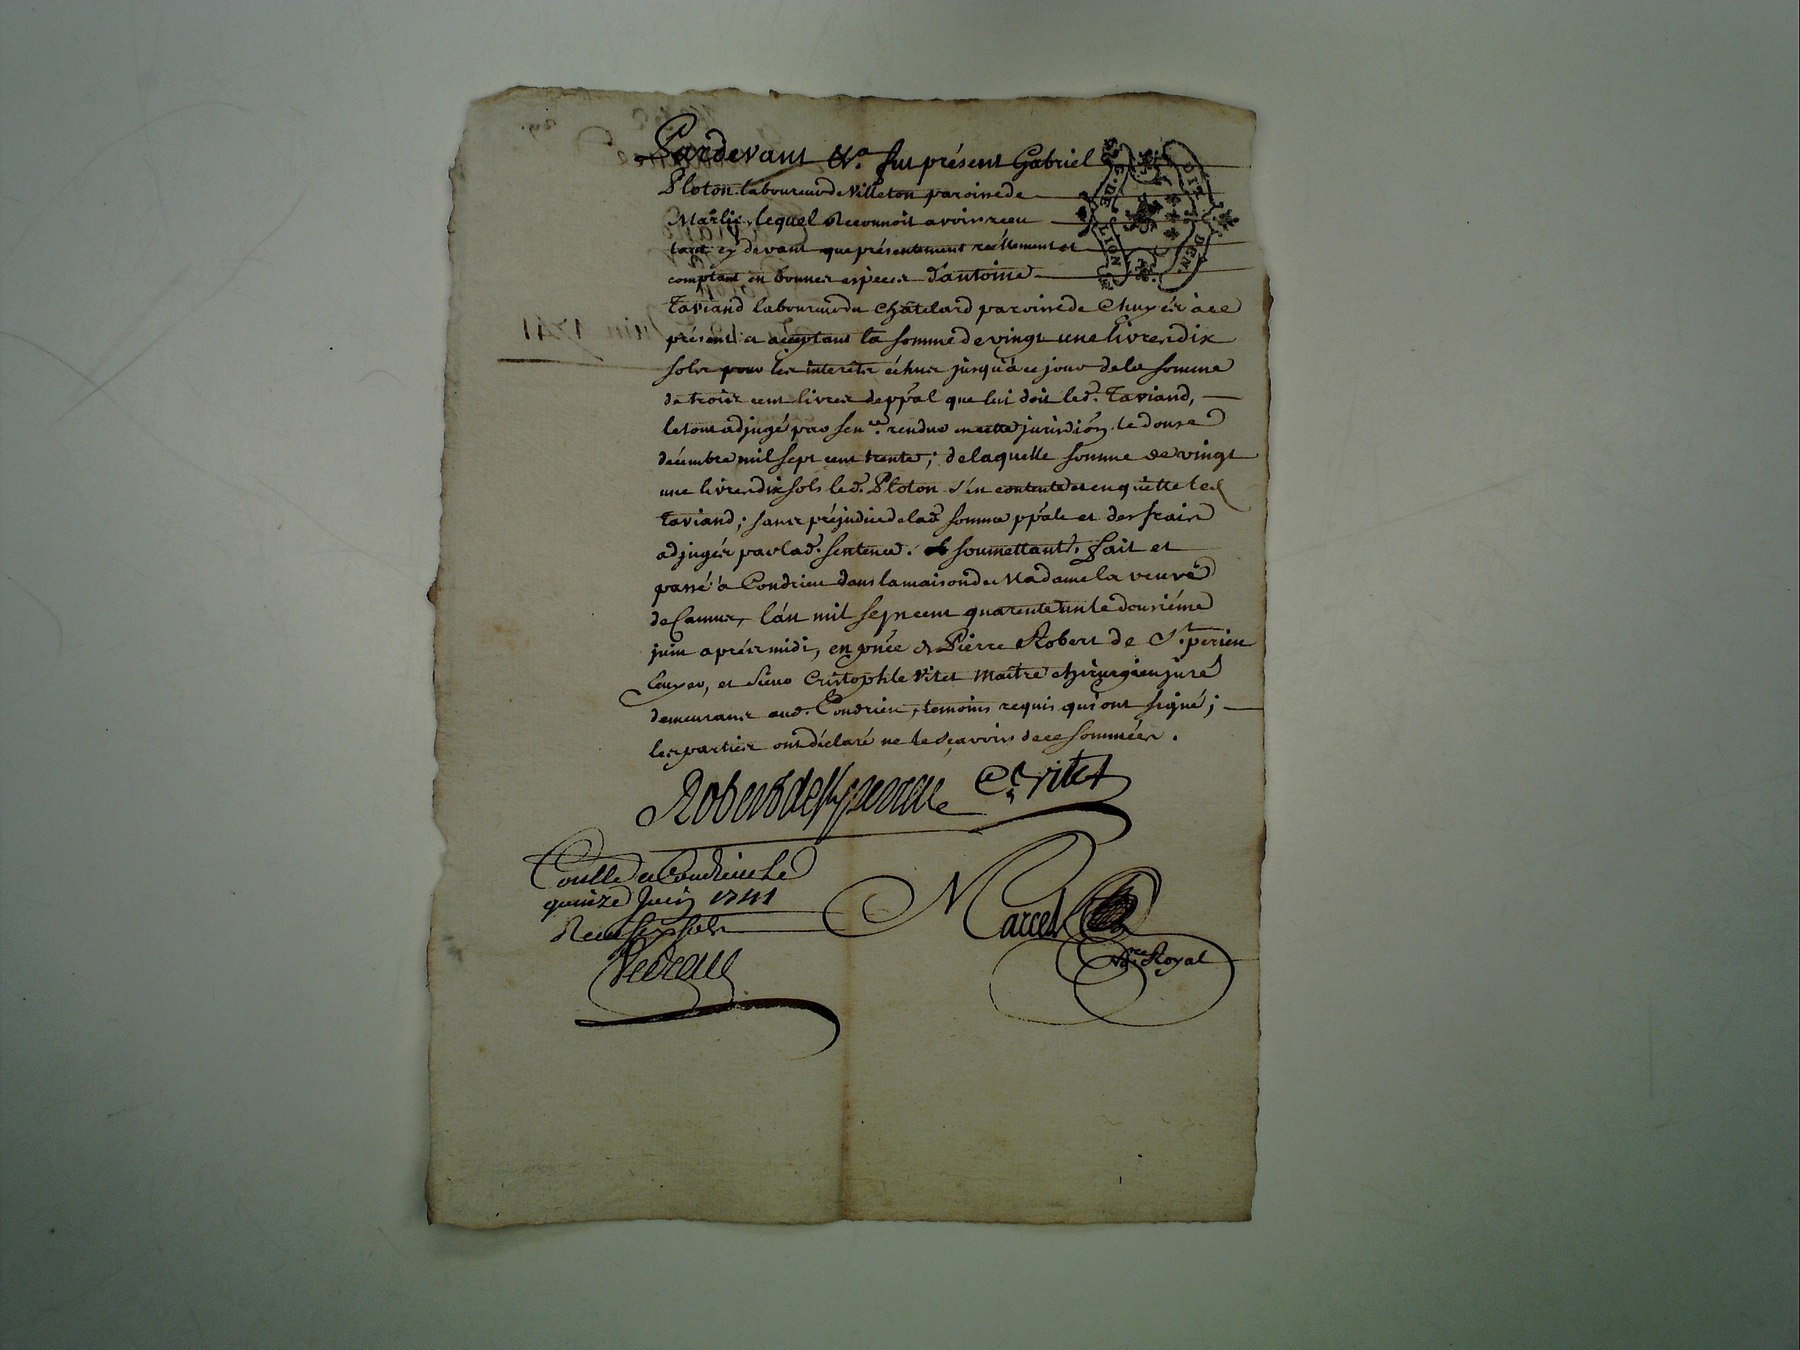 Pardevant &c.ª fut présent Gabriel
Ploton laboureur de Villeton paroisse de
Marlis, lequel Reconnoit avoir recu
tant cy devant que présentement reéllement et
comptant en bonnes espèces d'antoine
Taviand laboureur du Chatelard paroisse de Chuyés à ce
présent et acceptant la somme de vingt une livres dix
sols pour les interêts échus jusqu'à ce jour de la somme
de trois cent livres de ppal que lui doit led. Taviand,
le tout adjugé par sence. rendue en cette jurisdion. le douse
décembre mil sept cent trente; de laquelle somme de vingt
une livres dix sols led. Ploton s'en contente et en quitte led
Taviand; sans préjudice de lad somme ppale et des frais
adjugés par lad. sentence. soumettant. fait et
passé à Condrieu dans la maison de Madame la veuve
de Camus, l'an mil sept cent quarente un le dousiéme
juin aprés midi, en pnce de Pierre Robert de St. perieu
et sieur Cristophle Vitet maitre chirurgien juré
demeurans aud. Condrieu, temoins requis qui ont signé;
les parties ont déclaré ne le sçavoir de ce sommées.
C. Vitet
Conllé a Condrieu Le
quinze Juin 1741
Recu six sols
Marcel
Nre Royal
DEN.
LION
Juin 1741